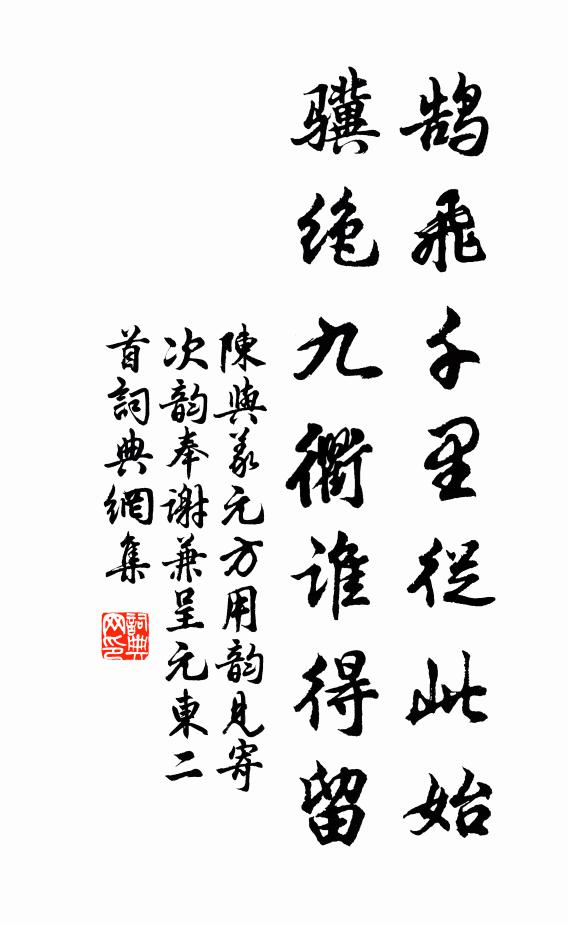 鵠飛千里從此始
驥絕九衢誰得留
陳與義元方用韵見寄
次韵奉謝兼呈元東二
首詞典網集
詞典
网印